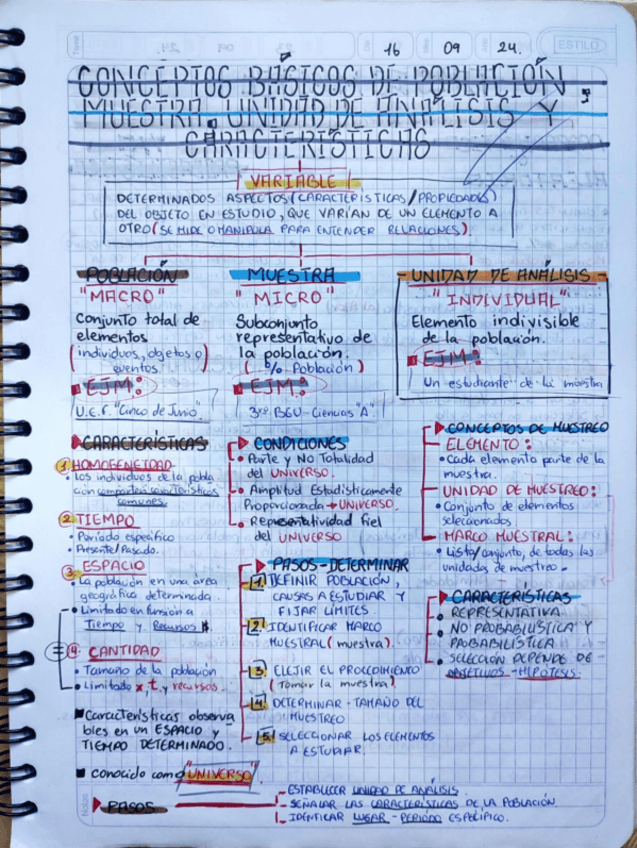 16 09 24.
ESTILO
CONCEPTOS BÁSICOS DE POBLACIÓN
MUESTRA, UNIDAD DE ANÁLISIS Y
CARACTERÍSTICAS
VARIABLE
DETERMINADOS ASPECTOS (CARACTERÍSTICAS/PROPIEDADES)
DEL OBJETO EN ESTUDIO, QUE VARÍAN DE UN ELEMENTO A
OTRO (SE MIDE O MANIPULA PARA ENTENDER RELACIONES).
POBLACIÓN
"MACRO"
Conjunto total de
elementos
(individuos, objetos o
eventos
EJM:
U.E.F. "Cinco de Junio".
CARACTERÍSTICAS
1. HOMOGENEIDAD
• Los individuos de la pobla
ción comparten características
comunes.
2. TIEMPO
• Período específico
• Presente/Pasado.
3. ESPACIO
• La población en una área
geográfica determinada.
• Limitado en función a
Tiempo y Recursos $.
4. CANTIDAD
• Tamaño de la población
• Limitado x, t. y recursos.
Características observa
bles en un ESPACIO y
TIEMPO DETERMINADO.
conocido como "UNIVERSO"
MUESTRA
"MICRO"
Subconjunto
representativo de
la población.
( % Población )
EJM:
3ro BGU-Ciencias "A"
CONDICIONES
• Parte y No Totalidad
del UNIVERSO.
• Amplitud Estadísticamente
Proporcionada → UNIVERSO.
• Representatividad fiel
del UNIVERSO
PASOS-DETERMINAR
1. DEFINIR POBLACIÓN,
CAUSAS A ESTUDIAR Y
FIJAR LÍMITES
2. IDENTIFICAR MARCO
MUESTRAL (muestra).
3. ELEJIR EL PROCEDIMIENTO
(Tomar la muestra).
4. DETERMINAR-TAMAÑO DEL
MUESTREO
5. SELECCIONAR LOS ELEMENTOS
A ESTUDIAR.
UNIDAD DE ANÁLISIS
"INDIVIDUAL"
Elemento indivisible
de la población.
EJM:
Un estudiante de la muestra
CONCEPTOS DE MUESTREO
ELEMENTO:
• Cada elemento parte de la
muestra.
UNIDAD DE MUESTREO:
• Conjunto de elementos
seleccionados
MARCO MUESTRAL:
• Lista/conjunto, de todas las
unidades de muestreo.
CARACTERÍSTICAS
• REPRESENTATIVA
• NO PROBABILÍSTICA Y
PROBABILÍSTICA
• SELECCIÓN DEPENDE DE
OBJETIVOS-HIPÓTESIS.
Notas
PASOS
ESTABLECER UNIDAD DE ANÁLISIS.
SEÑALAR LAS CARACTERÍSTICAS DE LA POBLACIÓN
IDENTIFICAR LUGAR-PERIODO ESPECÍFICO.